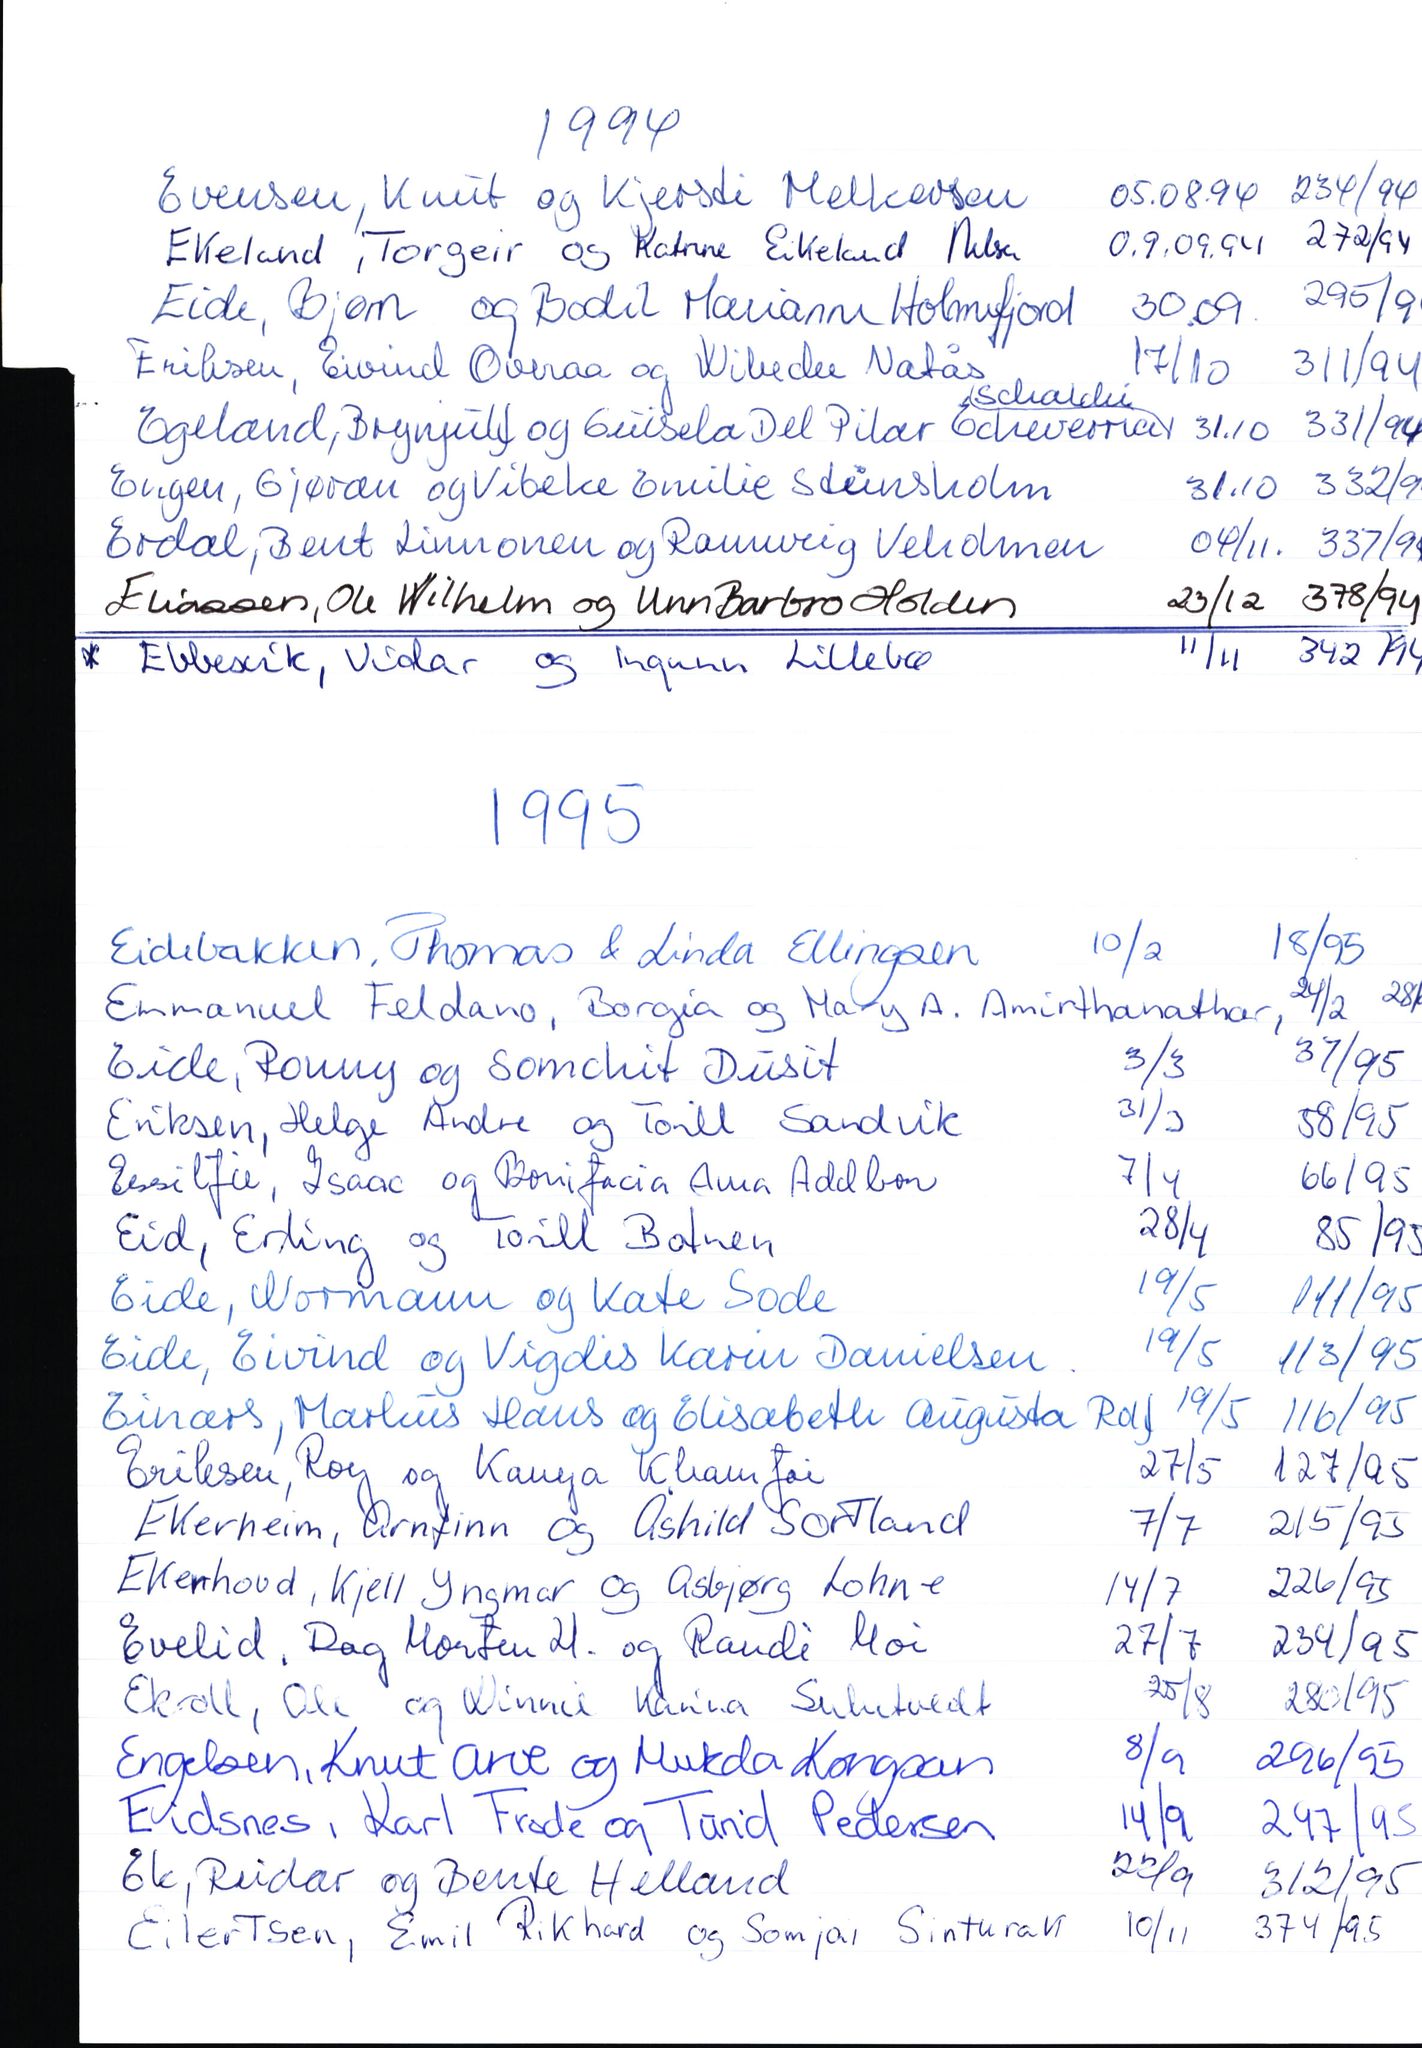 1994
Evensen, Knut og Kjersti Melkersen 05.08.94 234/94
Ekeland, Torgeir og Katrine Eikeland 0.9.09.94 272/94
Eide, Bjørn og Bodil Marianne Holmefjord 30.09. 295/9
Eriksen, Eivind Overaa og Wibeche Natås 17/10 311/94
Schalchi
Egeland, Brynjulf og Guisela Del Pilar Echeverria 31.10 331/94
Engen, Gjøran og Vibeke Emilie Steinsholm 31.10 332/9
Erdal, Bent Linnonen og Rannveig Veholmen 04/11. 337/94
Eliassen, Ole Wilhelm og Unn Barbro Holden 23/12 378/94
* Ebbesvik, Vidar og Ingunn Lillebø 11/11 342/94
1995
Eidebakken, Thomas & Linda Ellingsen 10/2 18/95
Emmanuel Feldano, Borgia og Mary A. Amirthanathar, 24/2 28/
Eide, Ronny og Somchit Dusit 3/3 37/95
Eriksen, Helge Andre og Torill Sandvik 31/3 58/95
Essilfie, Isaac og Bonifacia Ama Addbon 7/4 66/95
Eid, Erling og Torill Botnen 28/4 85/95
Eide, Normann og Kate Sode 19/5 111/95
Eide, Eivind og Vigdis Karin Danielsen. 19/5 113/95
Einars, Markus Hans og Elisabeth Augusta Rolf 19/5 116/95
Eriksen, Roy og Kanya Khamfoi 27/5 127/95
Ekerheim, Arnfinn og Åshild Sortland 7/7 215/95
Ekerhovd, Kjell Yngmar og Asbjørg Lohne 14/7 226/95
Evelid, Dag Morten H. og Randi Moi 27/7 234/95
Ekroll, Ole og Winnie Karina 25/8 280/95
Engelsen, Knut Arve og Mukda Kongsan 8/9 296/95
Eidsnes, Karl Frode og Turid Pedersen 14/9 297/95
Ek, Reidar og Bente Helland 22/9 312/95
Eilertsen, Emil Rikhard og Somjai Sinturak 10/11 374/95